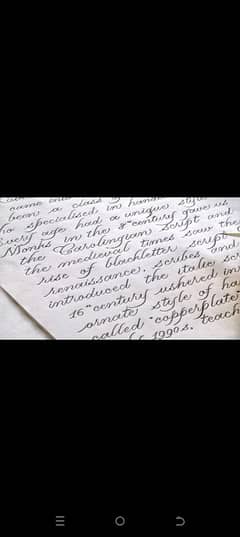 name
been a class
who specialised in hand
Every age had a unique style
Monks in the 8th century gave us
the Carolingian Script and
the medieval times saw the
rise of blackletter script
renaissance, scribes and
introduced the italic scr
16th century ushered in
ornate style of ha
called "copperplate
1990s, teach